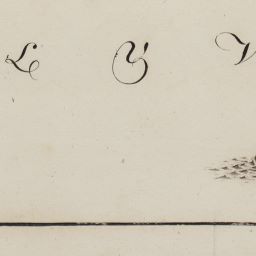 L Y V